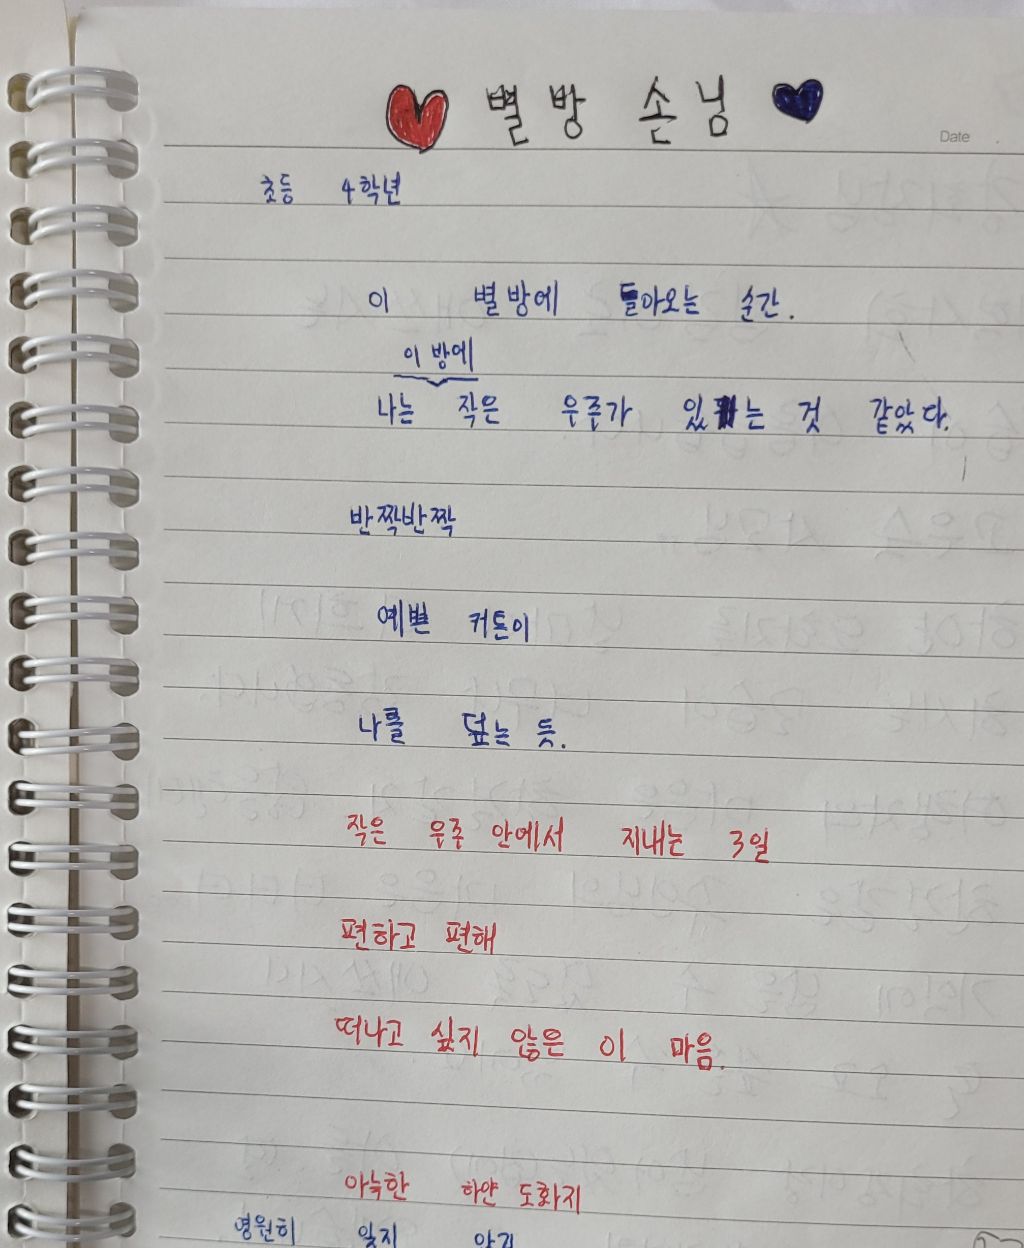 별방 손님
Date
초등 4학년
이 별방에 돌아오는 순간.
이 방에
나는 작은 우주가 있는 것 같았다.
반짝반짝
예쁜 커튼이
나를 덮는 듯.
작은 우주 안에서 지내는 3일
편하고 편해
떠나고 싶지 않은 이 마음.
아늑한 하얀 도화지
영원히 잊지